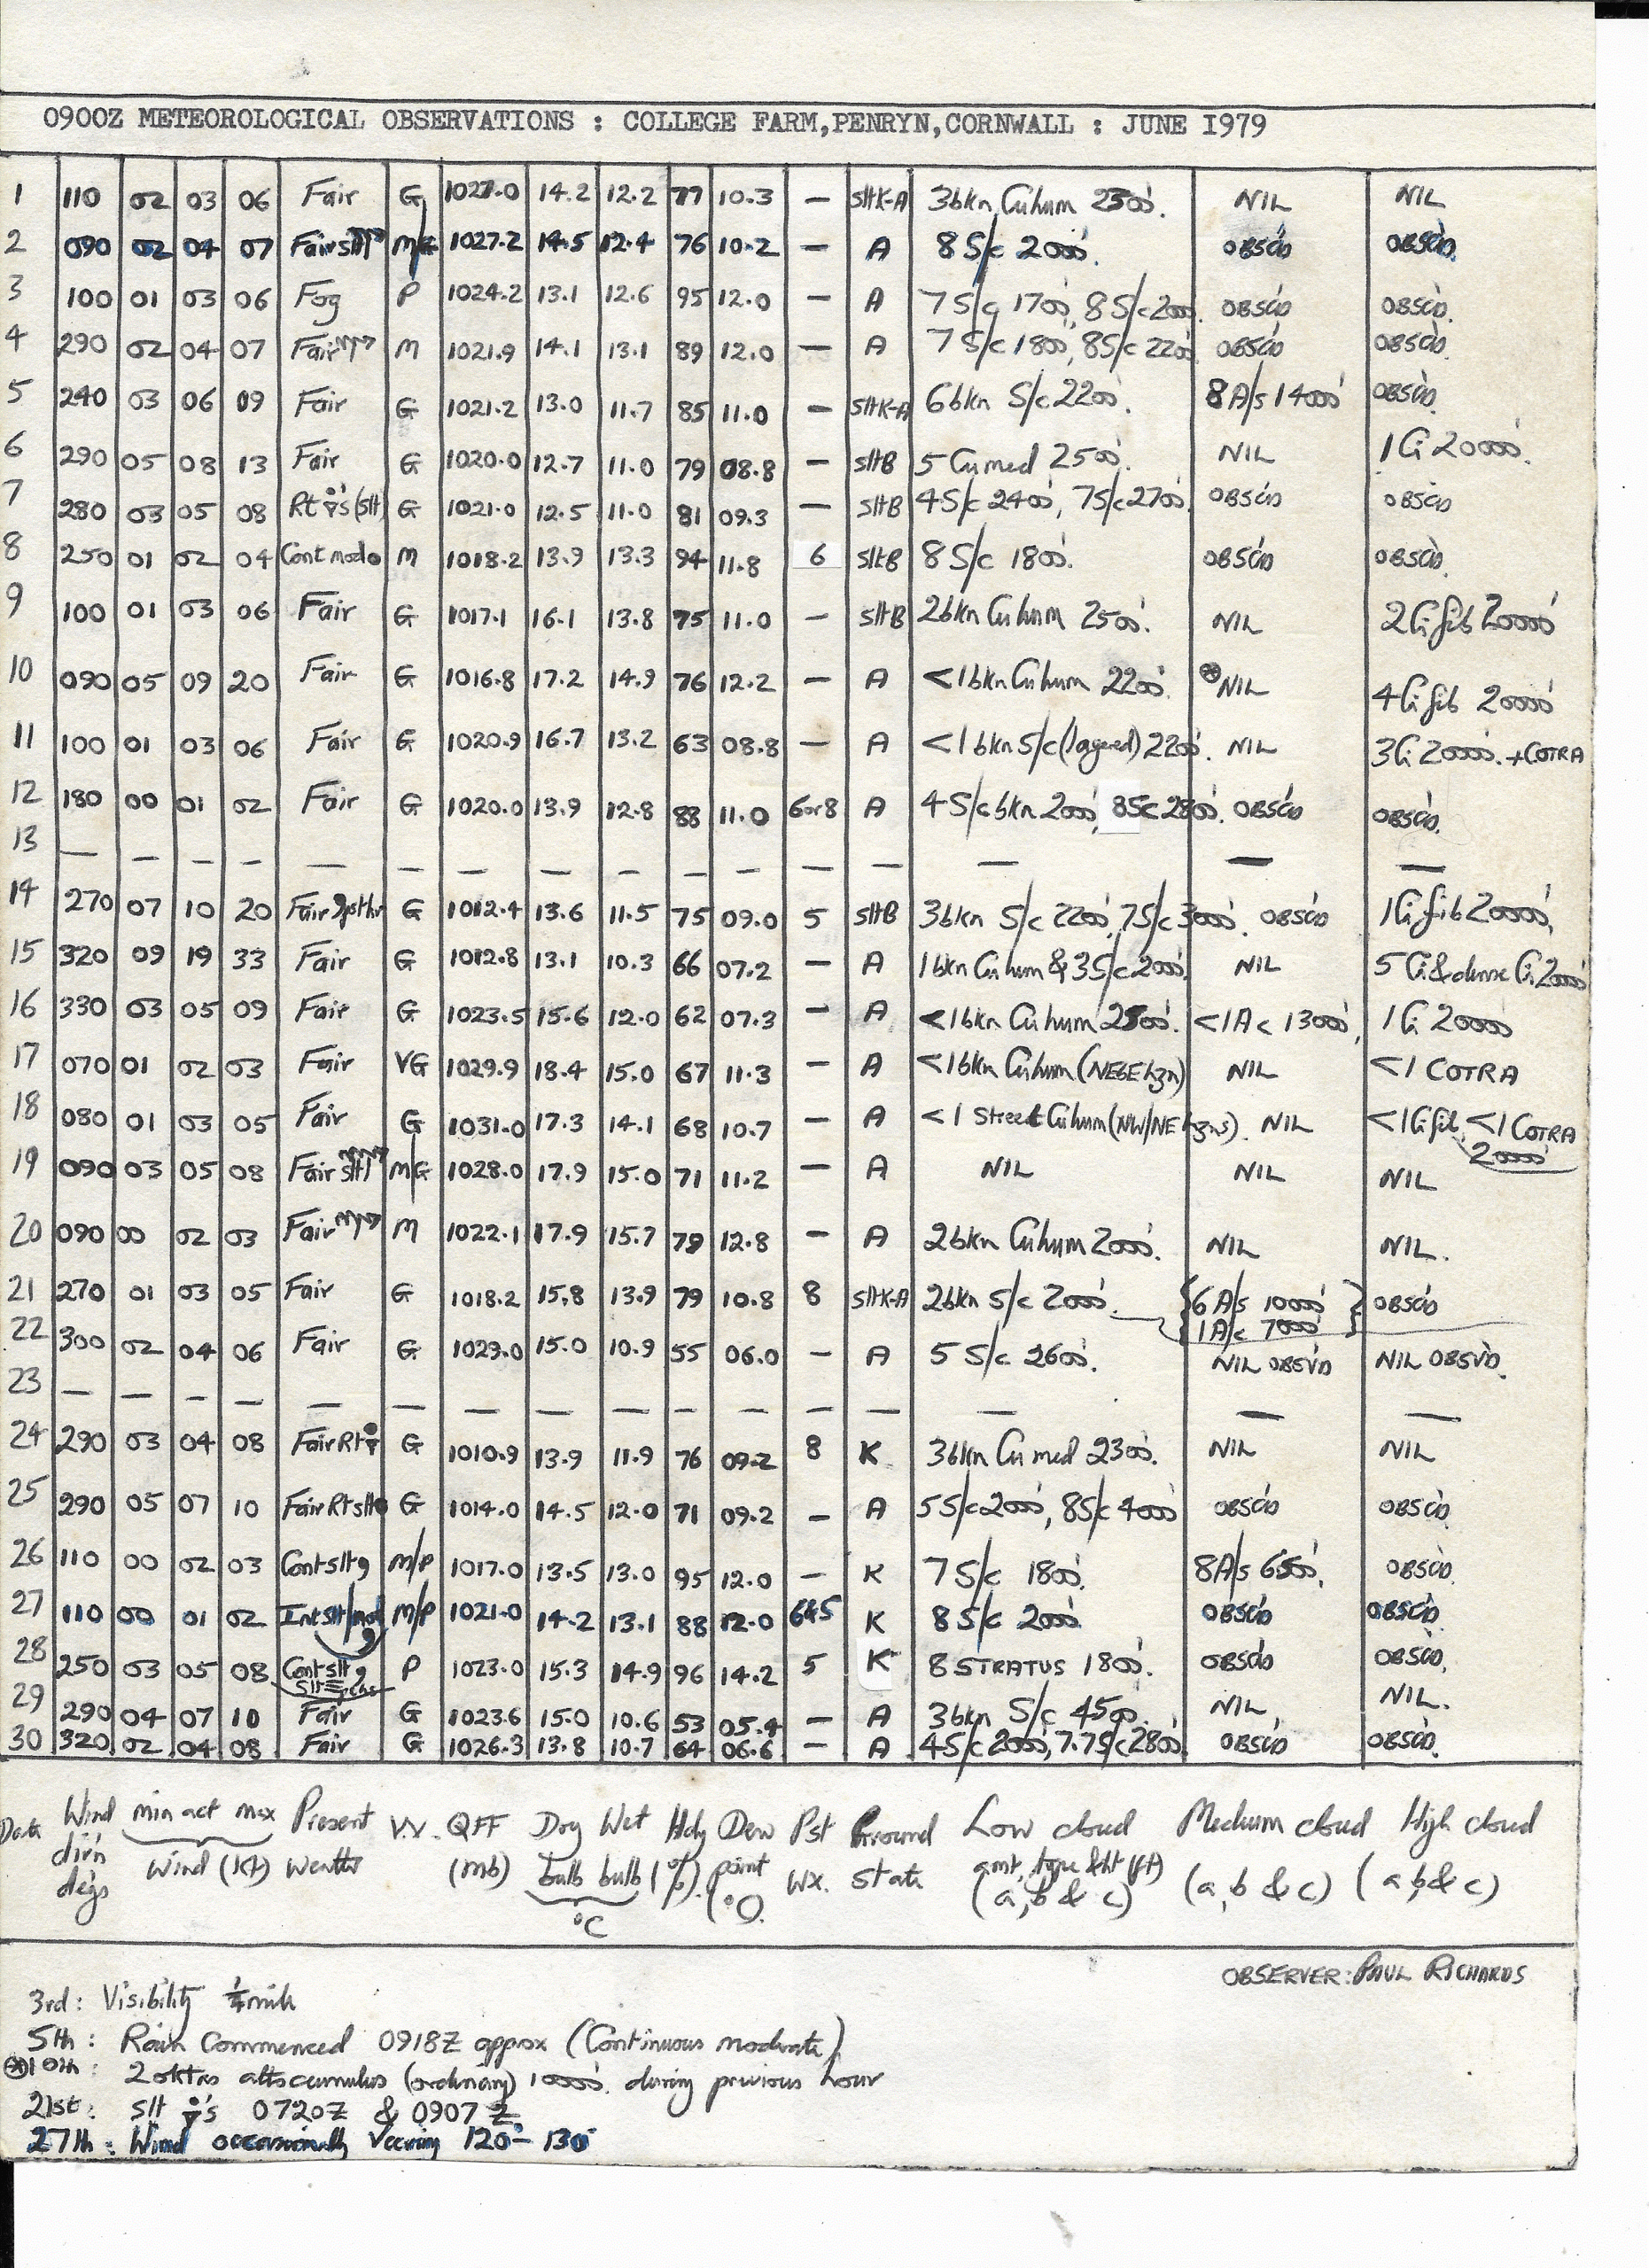 0900Z METEOROLOGICAL OBSERVATIONS : COLLEGE FARM,PENRYN,CORNWALL : JUNE 1979
1 110 02 03 06 Fair G 1027.0 14.2 12.2 77 10.3 — SltK-A 3bkn Cuhum 2500'. NIL NIL
2 090 02 04 07 Fair slt M/G 1027.2 14.5 12.4 76 10.2 — A 8 S/c 2000'. OBSC'D OBSC'D.
3 100 01 03 06 Fog P 1024.2 13.1 12.6 95 12.0 — A 7 S/c 1700', 8 S/c 2000'. OBSC'D OBSC'D.
4 290 02 04 07 Fair M 1021.9 14.1 13.1 89 12.0 — A 7 S/c 1800', 8S/c 2200' OBSC'D OBSC'D.
5 240 03 06 09 Fair G 1021.2 13.0 11.7 85 11.0 — SltK-A 6bkn S/c 2200'. 8 A/s 14000' OBSC'D.
6 290 05 08 13 Fair G 1020.0 12.7 11.0 79 08.8 — SltB 5 Cumed 2500'. NIL 1 Ci 20000'.
7 280 03 05 08 Rt s (Slt) G 1021.0 12.5 11.0 81 09.3 — SltB 4S/c 2400', 7S/c 2700'. OBSC'D OBSC'D
8 250 01 02 04 Cont mod M 1018.2 13.9 13.3 94 11.8 6 SltB 8 S/c 1800'. OBSC'D OBSC'D.
9 100 01 03 06 Fair G 1017.1 16.1 13.8 75 11.0 — SltB 2bkn Cuhum 2500'. NIL 2Ci fib 20000'
10 090 05 09 20 Fair G 1016.8 17.2 14.9 76 12.2 — A <1bkn Cuhum 2200'. ⊛NIL 4Ci fib 20000'
11 100 01 03 06 Fair G 1020.9 16.7 13.2 63 08.8 — A <1bkn S/c (layered) 2200'. NIL 3Ci 20000'. + COTRA
12 180 00 01 02 Fair G 1020.0 13.9 12.8 88 11.0 6or8 A 4S/c bkn 2000', 8Sc 2800'. OBSC'D OBSC'D.
13 — — — — — — — — — — — — — — — —
14 270 07 10 20 Fair G 1012.4 13.6 11.5 75 09.0 5 SltB 3bkn S/c 2200', 7S/c 3000'. OBSC'D 1Ci fib 20000',
15 320 09 19 33 Fair G 1012.8 13.1 10.3 66 07.2 — A 1bkn Cuhum & 3S/c 2000' NIL 5 Ci & dense Ci 20000'
16 330 03 05 09 Fair G 1023.5 15.6 12.0 62 07.3 — A <1bkn Cuhum 2500'. <1Ac 13000', 1Ci 20000'
17 070 01 02 03 Fair VG 1029.9 18.4 15.0 67 11.3 — A <1bkn Cuhum (NE&E hzn) NIL <1 COTRA
18 080 01 03 05 Fair G 1031.0 17.3 14.1 68 10.7 — A <1 Street Cuhum (NW/NE hzns). NIL <1Ci fib, <1 COTRA 20000'
19 090 03 05 08 Fair slt M/G 1028.0 17.9 15.0 71 11.2 — A NIL NIL NIL
20 090 00 02 03 Fair M 1022.1 17.9 15.7 79 12.8 — A 2bkn Cuhum 2000'. NIL NIL.
21 270 01 03 05 Fair G 1018.2 15.8 13.9 79 10.8 8 SltK-A 2bkn S/c 2000'. {6 A/s 10000' 1 A/c 7000'} OBSC'D
22 300 02 04 06 Fair G 1029.0 15.0 10.9 55 06.0 — A 5 S/c 2600'. NIL OBSV'D NIL OBSV'D.
23 — — — — — — — — — — — — — — — —
24 290 03 04 08 Fair Rt G 1010.9 13.9 11.9 76 09.2 8 K 3bkn Cu med 2300'. NIL NIL
25 290 05 07 10 Fair Rt slt G 1014.0 14.5 12.0 71 09.2 — A 5S/c 2000', 8S/c 4000' OBSC'D OBSC'D
26 110 00 02 03 Cont slt M/P 1017.0 13.5 13.0 95 12.0 — K 7 S/c 1800'. 8A/s 6500', OBSC'D.
27 110 00 01 02 Int slt/mod M/P 1021.0 14.2 13.1 88 12.0 6&5 K 8 S/c 2000'. OBSC'D OBSC'D.
28 250 03 05 08 Cont slt P 1023.0 15.3 14.9 96 14.2 5 K 8 STRATUS 1800'. OBSC'D OBSC'D,
29 290 04 07 10 Fair G 1023.6 15.0 10.6 53 05.4 — A 3bkn S/c 4500'. NIL, NIL.
30 320 02 04 08 Fair G 1026.3 13.8 10.7 64 06.6 — A 4S/c 2000', 7.7S/c 2800' OBSC'D OBSC'D.
Date Wind dir'n degs min act max Wind (Kt) Present Weather V.V. QFF (mb) Dry bulb Wet bulb °C Hdy (%) Dew point (°C). Pst Wx. Ground State Low cloud amt, type & ht (ft) (a,b & c) Medium cloud (a,b & c) High cloud (a,b & c)
OBSERVER: PAUL RICHARDS
3rd: Visibility ¼ mile
5th: Rain Commenced 0918Z approx (Continuous moderate)
⊛10th: 2 oktas altocumulus (ordinary) 10000'. during previous hour
21st: Slt s 0720Z & 0907Z
27th: Wind occasionally Veering 120°- 130°